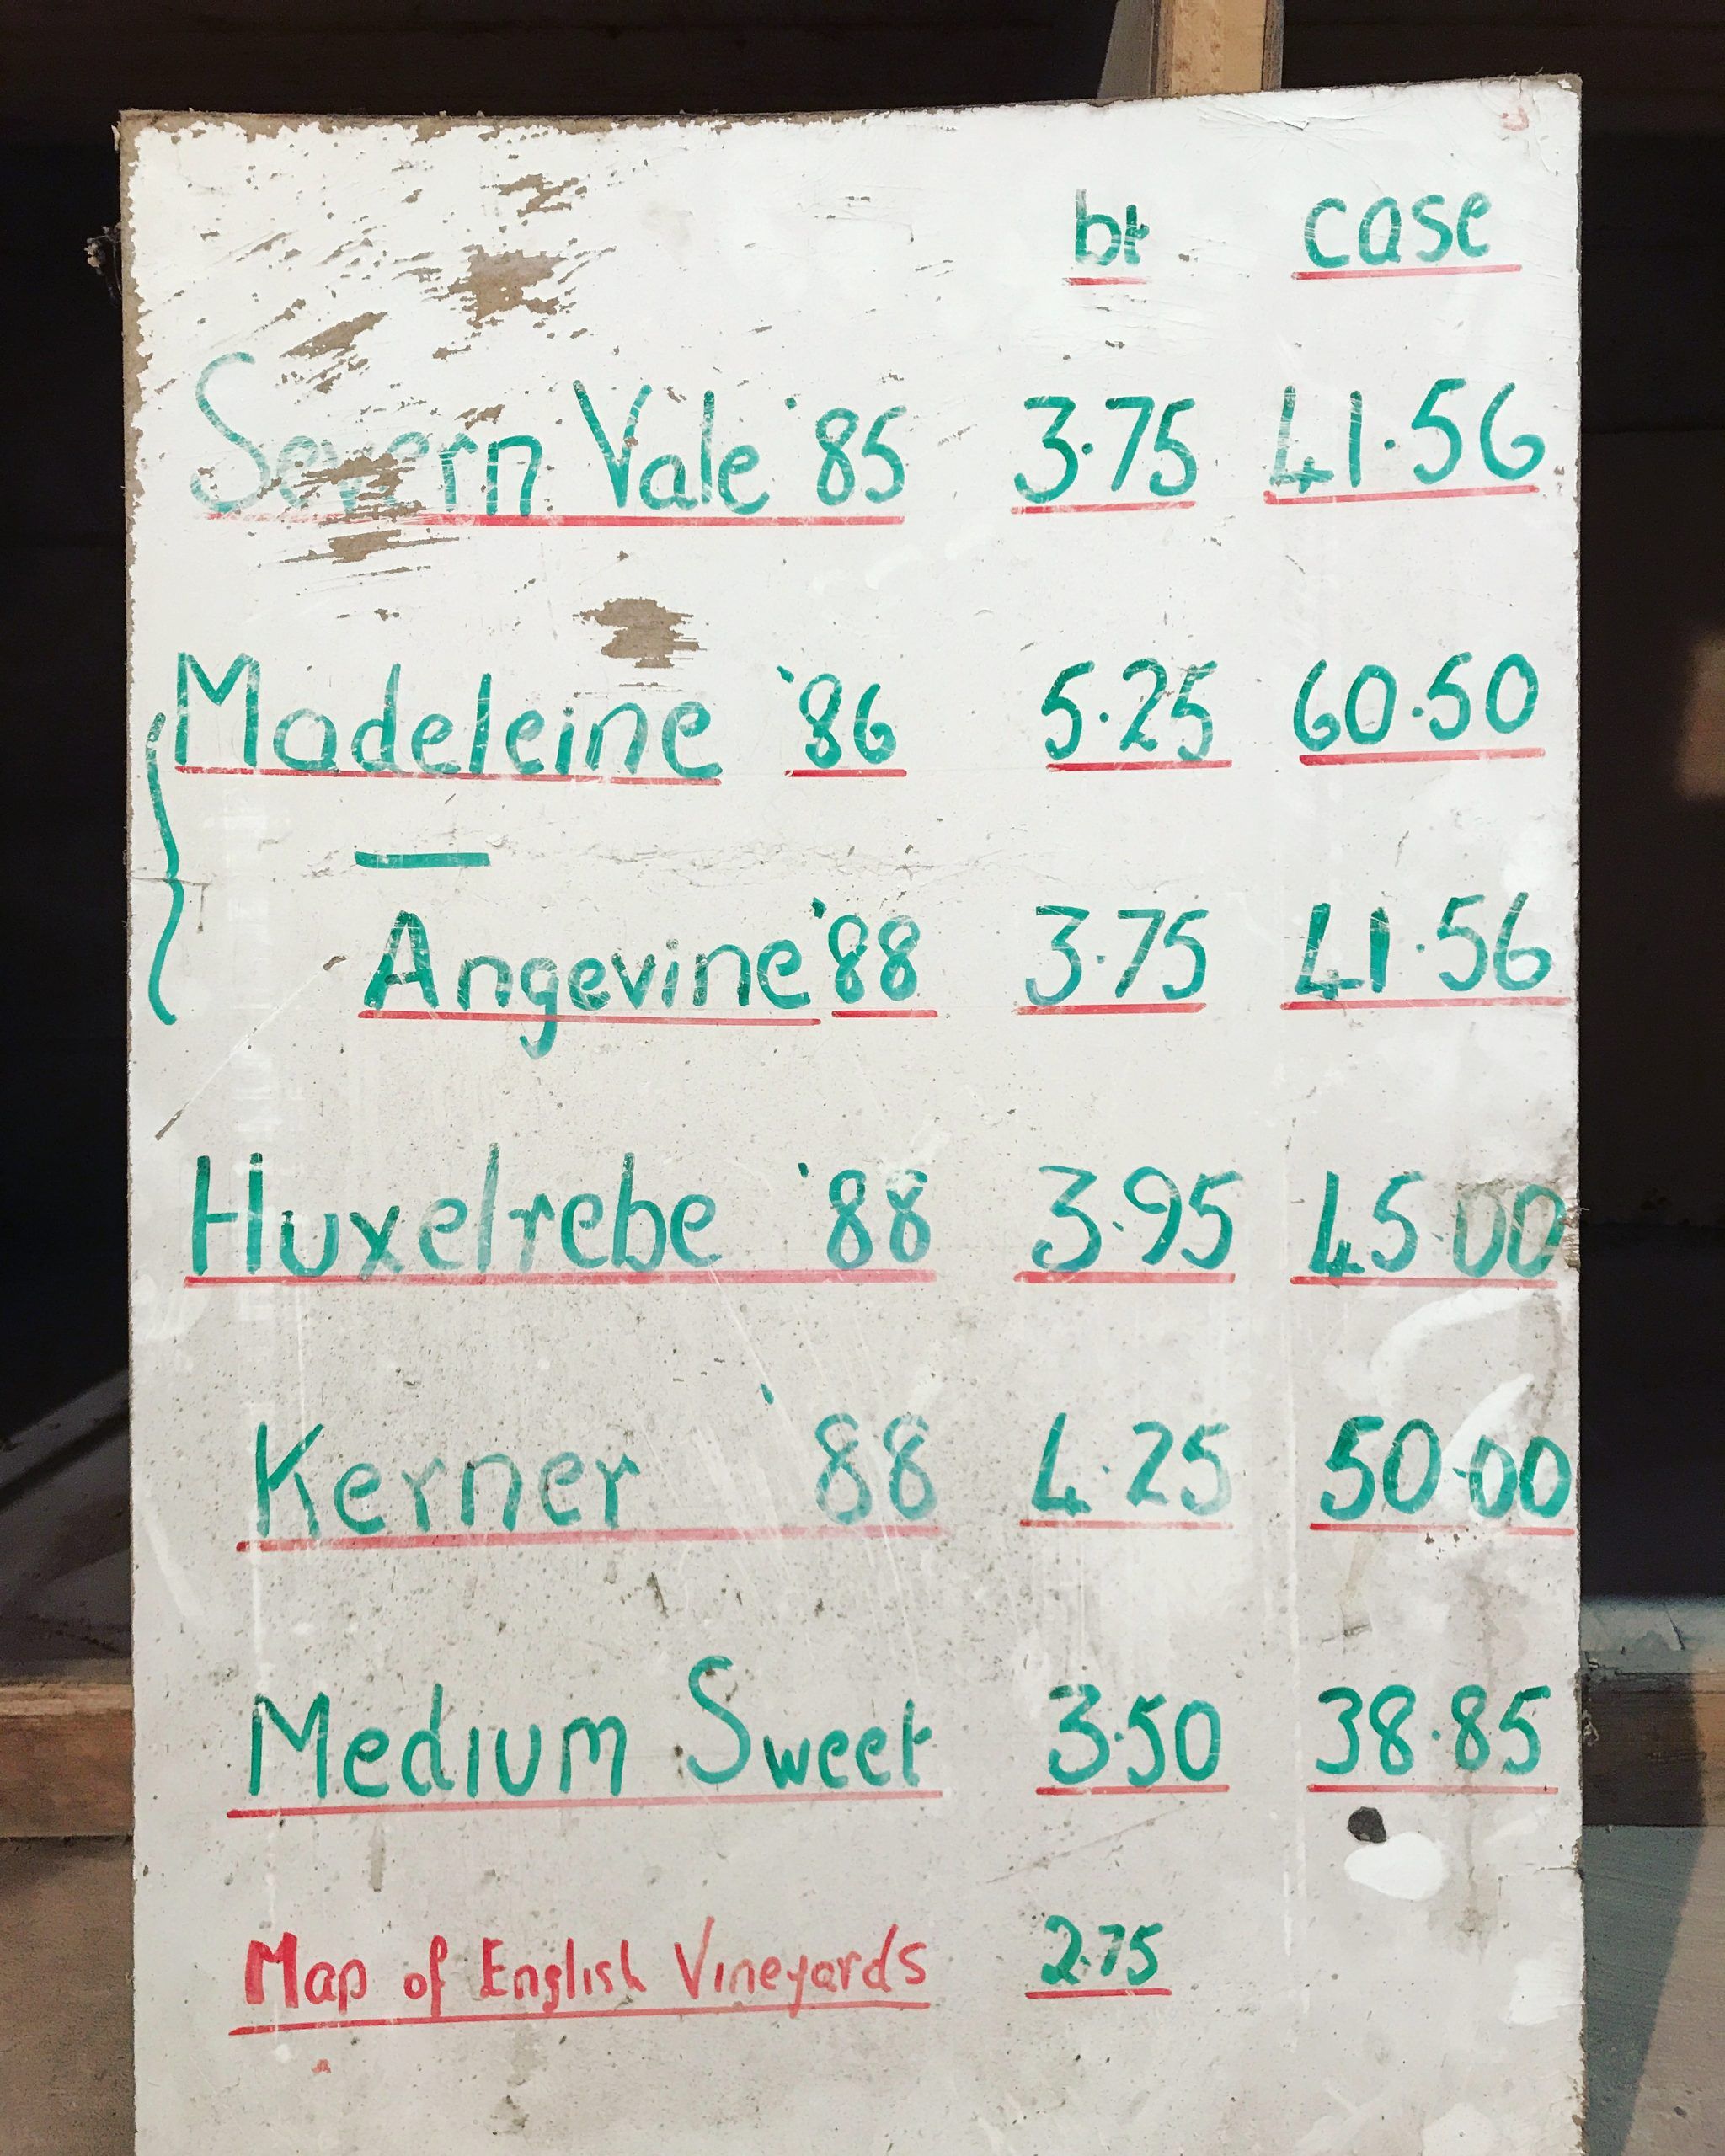 bt case
Severn Vale '85 3·75 41·56
Madeleine '86 5·25 60·50
—
Angevine '88 3·75 41·56
Huxelrebe '88 3·95 45·00
Kerner '88 4·25 50·00
Medium Sweet 3·50 38·85
Map of English Vineyards 2·75